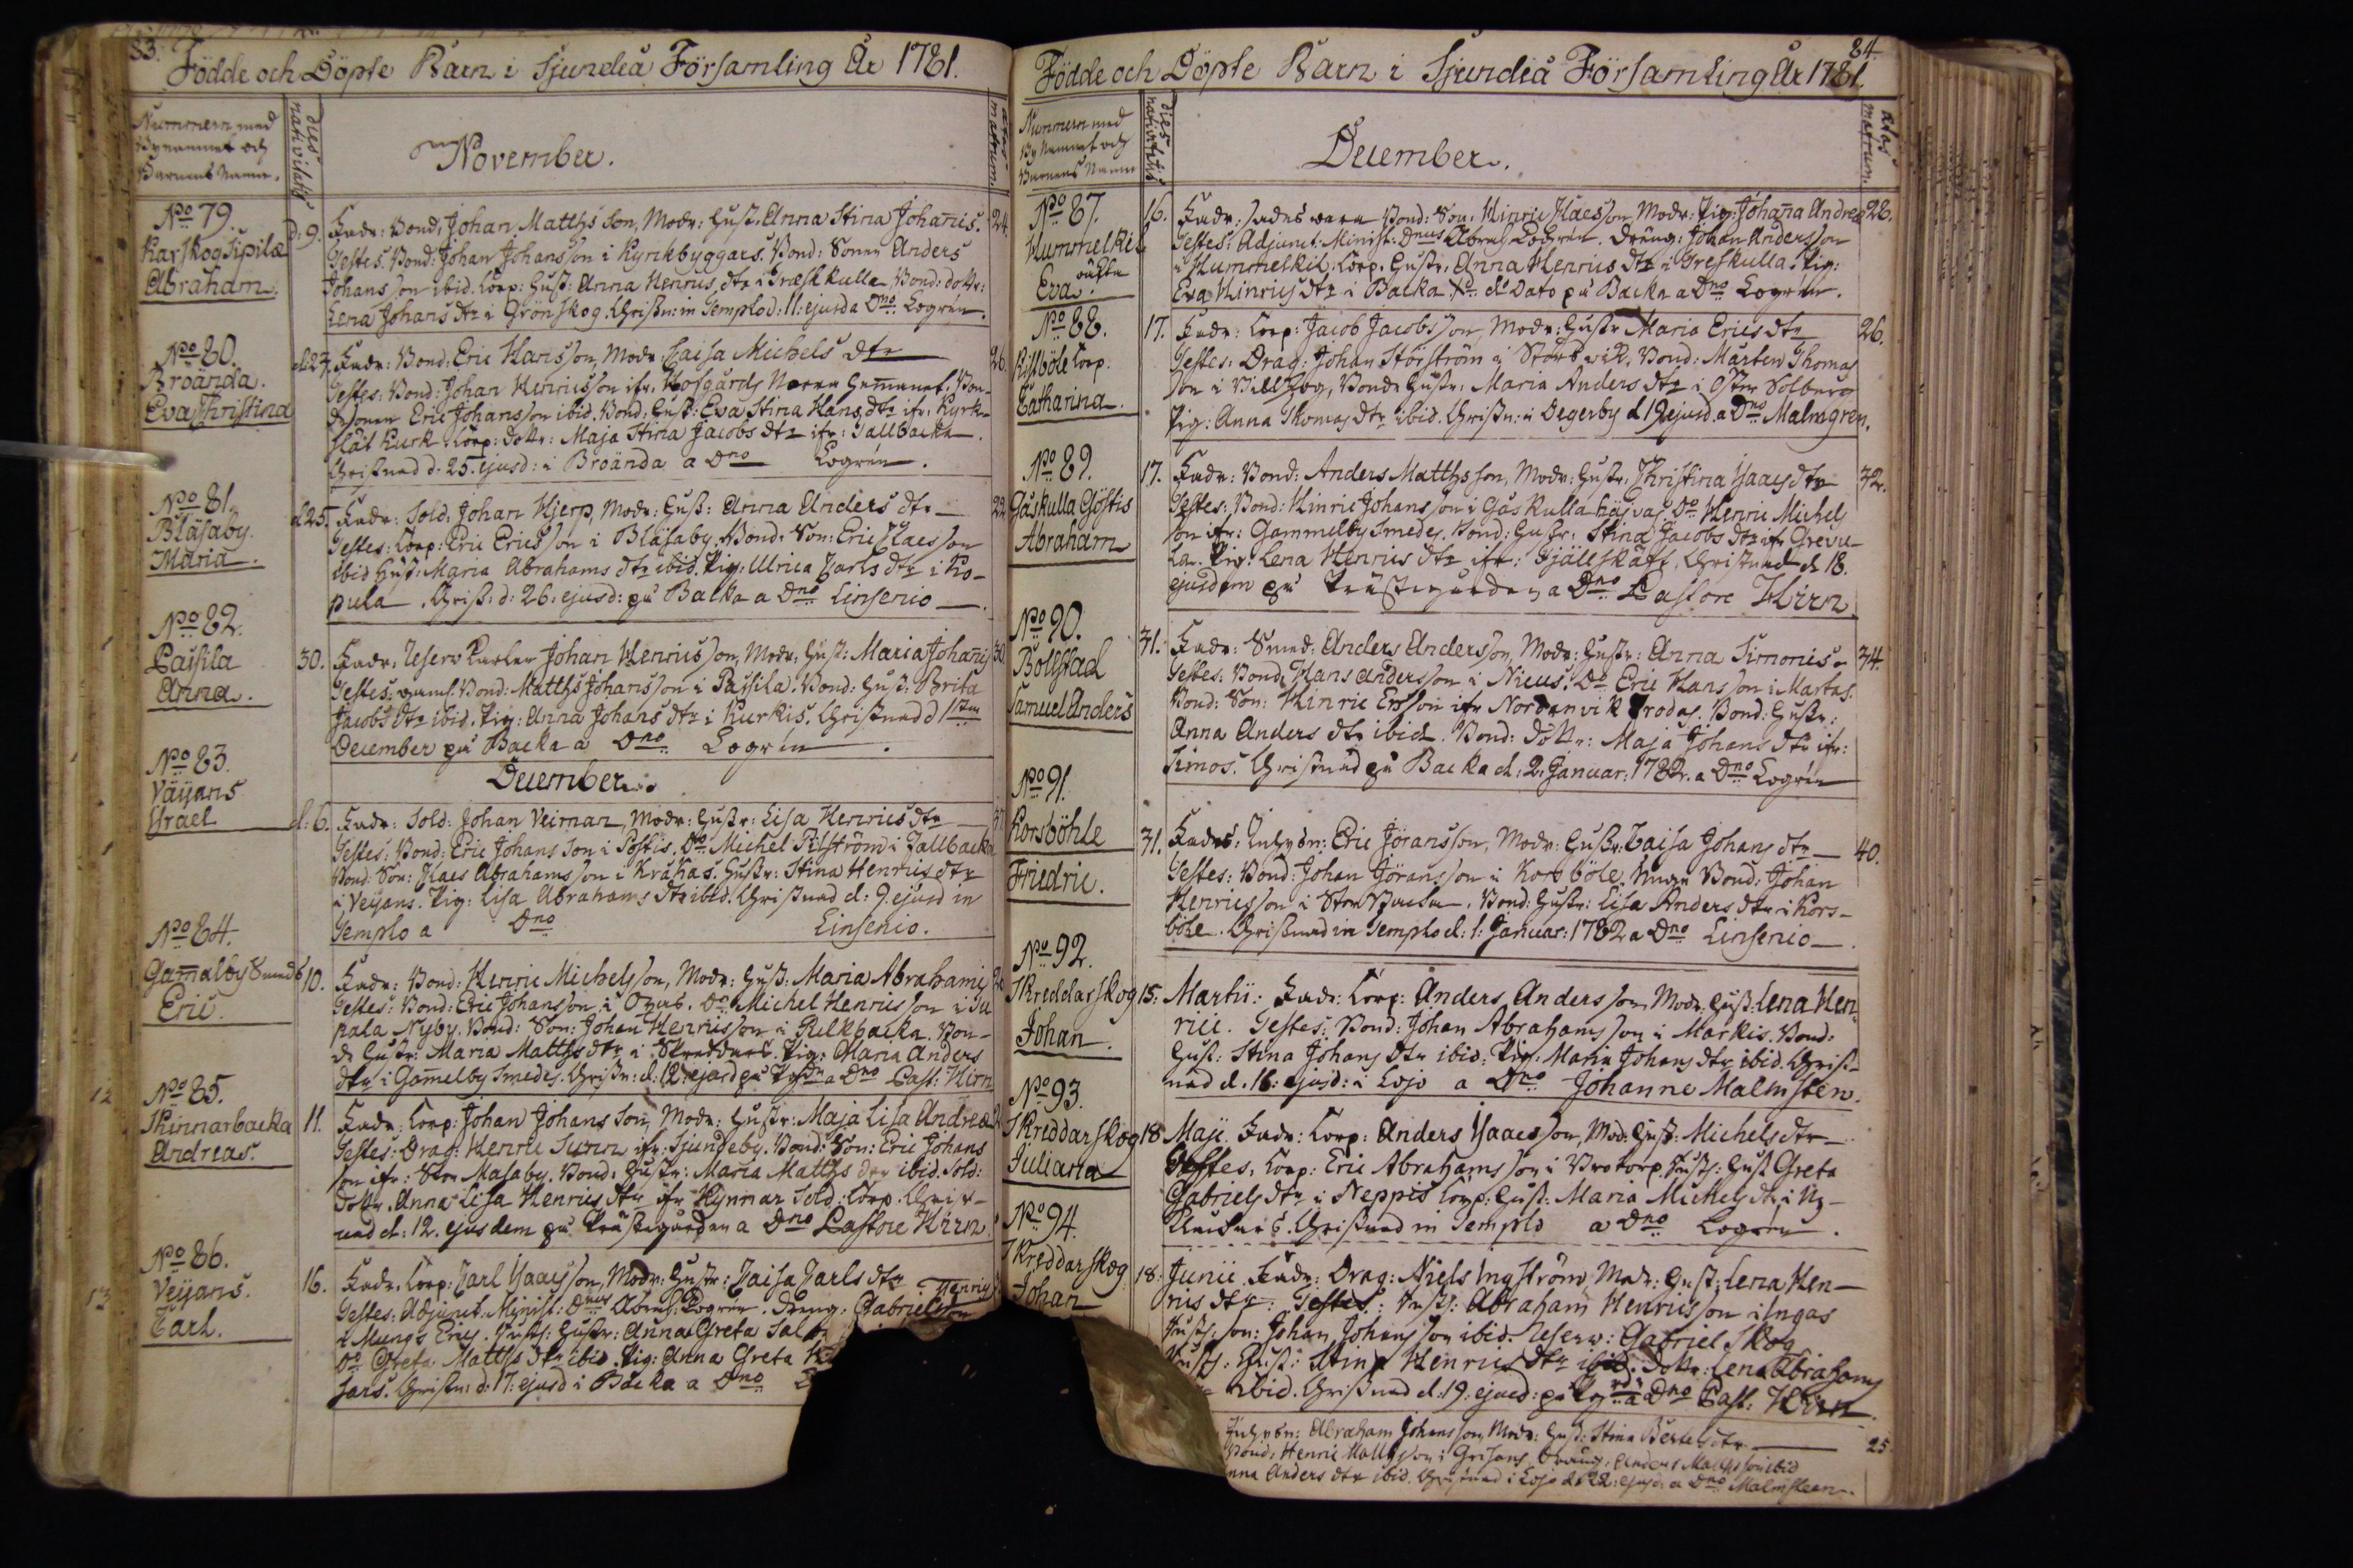 83.
Födde och Döpte Barn i Sjundeå Församling År 1781.
Nummern med
Bynamnet och
Barnens Namn.
dies nativitatis
November.
ætas matrum.
No 79.
Karskog Sipilæ
Abraham.
d: 9.
Fadr: Bond: Johan Matths Son, Modr: Hust: Anna Stina Johanis.
24.
Testes. Bond: Johan Johansson i Kyrkbyggars. Bond: Sonen Anders
Johansson ibid. Corp: Hust: Anna Henrics dtr i Træskkulla Bond: dottr:
Lena Johans dtr i Grönskog. Christn: in Templo d: 11: ejusd a Dno Logrén.
No 80.
Broända.
Eva Christina
d 23.
Fadr: Bond: Eric Hansson, Modr Caisa Michels dtr
26.
Testes: Bond: Johan Henricsson ifr. Hofgårds Norra Hemanet. Bon-
desonen Eric Johansson ibid. Bond: Hust: Eva Stina Hans dtr ifr. Kyrk-
slät Kurk Corp: Dottr: Maja Stina Jacobs dtr ifr: Tallbacka.
Christnad d. 25. ejusd: i Broända a Dno Logrén.
No 81.
Bläsaby.
Maria.
d 25.
Fadr: Sold. Johan Hjerp, Modr: Hust: Anna Anders dtr
22
Testes: Corp: Eric Ericsson i Bläsaby. Bond: Son: Eric Claesson
ibid Hust: Maria Abrahams dtr ibid. Pig: Ulrica Carls dtr i Ko-
pula. Christ: d: 26: ejusd: på Backa a Dno Linsenio
No 82.
Passila
Anna.
30.
Fadr. Reserv Karlen Johan Henricsson, Modr: Hust: Maria Johanis
30
Testes: Bond: Matths Johansson i Passila. Bond: Hust: Brita
Jacobs dtr ibid. Pig: Anna Johans dtr i Kurkis. Christnad d 1sta
December på Backa a Dno Logrén
December.
No 83.
Väijans
Israel
d: 6.
Fadr: Sold: Johan Veiman, Modr: Hustr: Lisa Henrics dtr
Testes: Bond: Eric Johans Son i Postis. Do Michel Pilström i Tallbacka
Bond: Son: Claes Abrahamsson i Kråkas. Hustr: Stina Henrics dtr
i Veijans. Pig: Lisa Abrahams dtr ibid. Christnad d: 9. ejusd in
Templo a Dno Linsenio.
No 84.
Gamalby Smeds
Eric.
10.
Fadr: Bond: Henric Michelsson, Modr: Hust: Maria Abrahami
Testes: Bond: Eric Johansson i Ovas. Do Michel Henricsson i Su
kala Nyby. Bond: Son: Johan Henricsson i Rilkbacka. Bon-
de Hustr: Maria Matths dtr i Skreddars. Pig: Maria Anders
dtr i Gamelby Smedes. Christn: d: 12: ejusd på Pgdn a Dno Past: Hirn
No 85.
Skinnarbacka
Andreas.
11.
Fadr: Corp: Johan Johans Son, Modr: Hustr: Maja Lisa Andreæ
Testes: Drag: Henric Sunn ifr. Sjundeby. Bond: Son: Eric Johans
son ifr: Stor Masaby. Bond: Hustr: Maria Matths dtr ibid. Sold:
Dottr. Anna Lisa Henrics dtr ifr Kynnar Sold: Torp. Christ-
nad d: 12. ejusdem på Prästegården a Dno Pastore Hirn
No 86.
Veijans.
Carl.
16.
Fadr. Corp: Carl Isaacsson, Modr: Hustr: Caisa Carls dtr
Testes: Adjunct. Minist: Dnus Abrah: Logrén. Dreng: Gabriel Henrics
i Mungs Erics. Hustr: Anna Greta
Do Greta Matths dtr ibid. Pig: Anna Greta
sars. Christn: d: 17: ejusd i Backa a Dno
84.
Födde och Döpte Barn i Sjundeå Församling År 1781.
Nummern med
By Namnet och
Barnens Namn
dies nativitatis
December.
ætas matrum.
No 87.
Hummelkil
oäkta
Eva.
16.
Fadr: sades vara Bond: Son: Hinric Claesson, Modr: Pig: Johana Andreæ
28.
Testes: Adjunct: Minist: Dnus Abrah Logrén. Dräng: Johan Andersson
i Hummelkil. Corp. Hustr. Anna Henrics dtr i Treskulla. Pig:
Eva Hinrics dtr i Backa. Do Dato på Backa a Dno Logrén.
No 88.
Kistböle Torp.
Catharina.
17.
Fadr: Corp: Jacob Jacobsson, Modr: Hustr Maria Erics dtr
26.
Testes: Drag: Johan Störström i Störsvik, Bond: Mårten Thomas
son i Villskog, Bonde Hustr: Maria Anders dtr i Öster Solberg
Pig: Anna Thomas dtr ibid. Christn: i Degerby d 19 ejusd. a Dno Malmgren.
No 89.
Gåskulla Göstis
Abraham
17.
Fadr: Bond: Anders Matthsson, Modr: Hustr: Christina Isaacs dtr
32.
Testes: Bond: Hinric Johansson i Gåskulla Do Henric Michels
son ifr: Gammelby Smedes. Bond: Hustr: Stina Jacobs dtr ifr Grevu-
la. Pig: Lena Henrics dtr ifr: Fjällskäft. Christnad d 18.
ejusdem på Prästegården a Dno Pastore Hirn
No 90.
Bölsstad
Samuel Anders
31.
Fadr: Smed: Anders Andersson, Modr: Hustr: Anna Simonis
34.
Testes: Bond: Hans Andersson i Nicus. Do Eric Hansson i Martas.
Bond: Son: Hinric Ersson ifr Nordanvik Frodas. Bond: Hustr:
Anna Anders dtr ibid. Bond: Döttr: Maja Johans dtr ifr:
Simos. Christnad på Backa d: 2. Januar: 1782. a Dno Logrén
No 91.
Korsböhle
Friedric.
31.
Fadr: Inhysn: Eric Jöransson, Modr: Hustr: Caisa Johans dtr
40.
Testes: Bond: Johan Göransson i Korsböle, Bond: Johan
Henricsson i Stor Backa. Bond: Hustr: Lisa Anders dtr i Kors-
böle. Christnad in Templo d: 1: Januar: 1782 a Dno Linsenio
No 92.
Skreddarskog
Johan.
15:
Martii: Fadr: Corp: Anders Andersson, Modr: Hust: Lena Hen
rici. Testes: Bond: Johan Abrahamsson i Markis. Bond:
Hust: Stina Johans dtr ibid: Pig: Maria Johans dtr ibid. Christ-
nad d. 16: ejusd: i Lojo a Dno Johanne Malmsten.
No 93.
Skreddarskog
Juliana
18
Maji. Fadr: Corp: Anders Isaacsson, Mod: Hust: Michels dtr
Testes, Corp: Eric Abrahamsson i Brotorp. Hust Greta
Gabriels dtr i Neppis Corp: Hust: Maria Michels dtr i
Christnad in Templo a Dno Logrén.
No 94.
Skreddarskog
Johan
18:
Junii Fadr: Drag: Niels Ingström, Modr: Hust: Lena Hen-
rics dtr: Testes: Abraham Henricsson i Ingas
son: Johan Johansson ibid. Reserv: Gabriel Skog
Hust: Stina Henrics dtr ibid. Dottr: Lena Abrahams
ibid. Christnad d: 19: ejusd: på a Dno Past: Hirn.
Inhysn: Abraham Johansson, Modr: Hust: Stina Bertels dtr
25
Bond: Henric Mattsson i Grisans Dräng: Anders Matthsson ibid
nna Anders dtr ibid. Christnad i Lojo d 22: ejusd: a Dno Malmsteen.